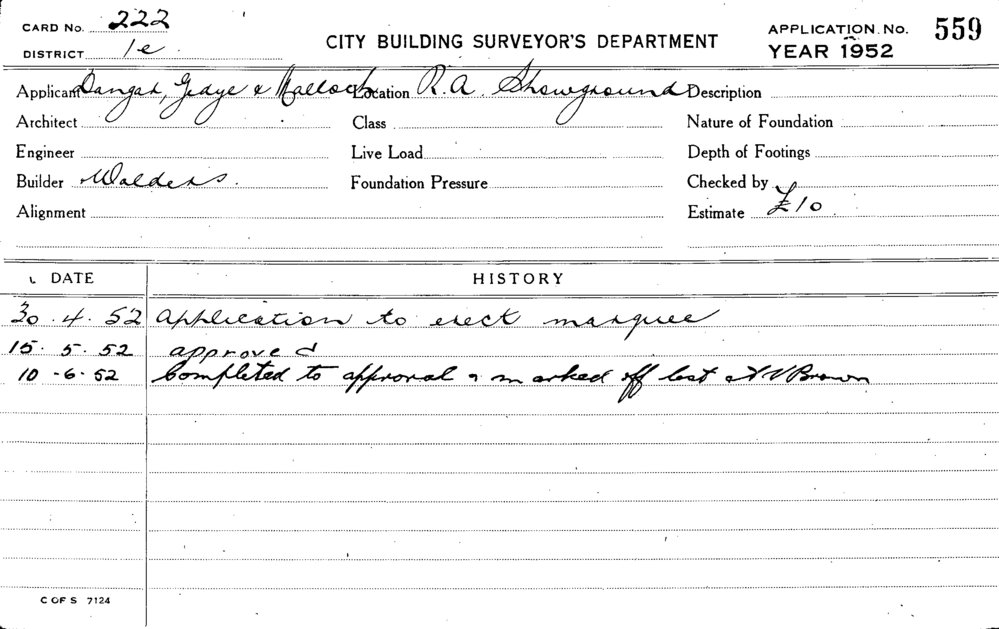 CARD No. 222
DISTRICT 1e.
CITY BUILDING SURVEYOR'S DEPARTMENT
APPLICATION. No. 559
YEAR 1952
Applicant Dangar, Gedye & Malloch Location R.A. Showground Description
Architect Class Nature of Foundation
Engineer Live Load Depth of Footings
Builder Walders. Foundation Pressure Checked by
Alignment Estimate £10
DATE HISTORY
30.4.52 Application to erect marquee
15.5.52 approved
10-6-52 Completed to approval & marked off list Brown
C OF S 7124